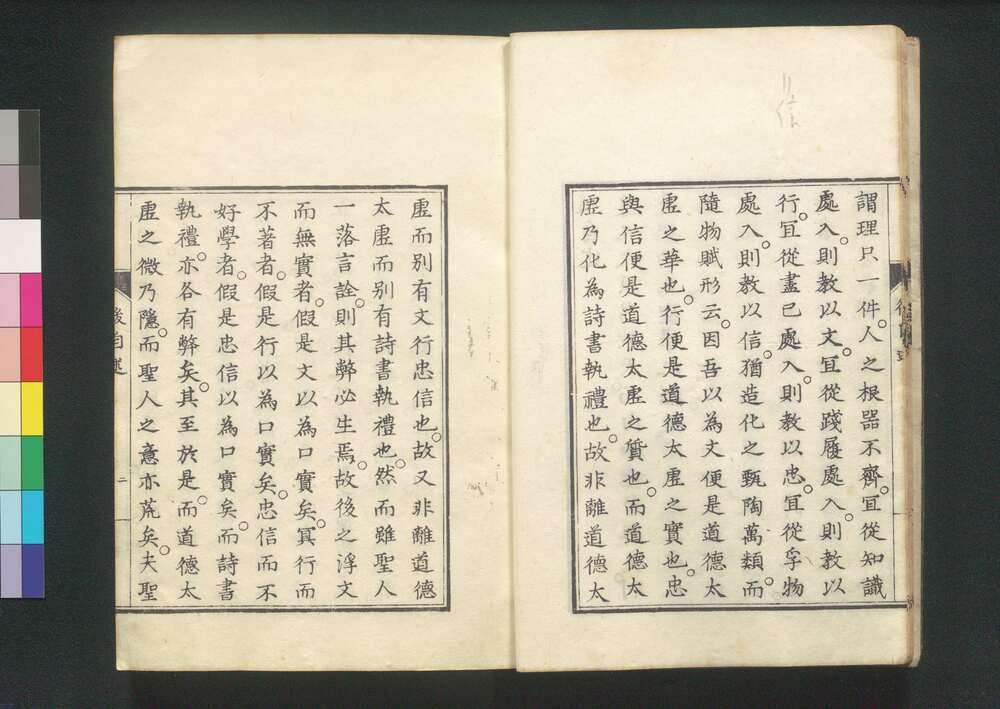 謂理只一件。人之根器不齊。宜從知識
處入。則教以文。宜從踐履處入。則教以
行。宜從盡己處入。則教以忠。宜從孚物
處入。則教以信。猶造化之甄陶萬類。而
隨物賦形云。因吾以為文便是道德太
虛之華也。行便是道德太虛之實也。忠
與信便是道德太虛之質也。而道德太
虛乃化為詩書執禮也。故非離道德太
虛而別有文行忠信也。故又非離道德
太虛而別有詩書執禮也。然而雖聖人
一落言詮。則其弊必生焉。故後之浮文
而無實者。假是文以為口實矣。冥行而
不著者。假是行以為口實矣。忠信而不
好學者。假是忠信以為口實矣。而詩書
執禮。亦各有弊矣。其至於是。而道德太
虛之微乃隱。而聖人之意亦荒矣。夫聖
後自述
二